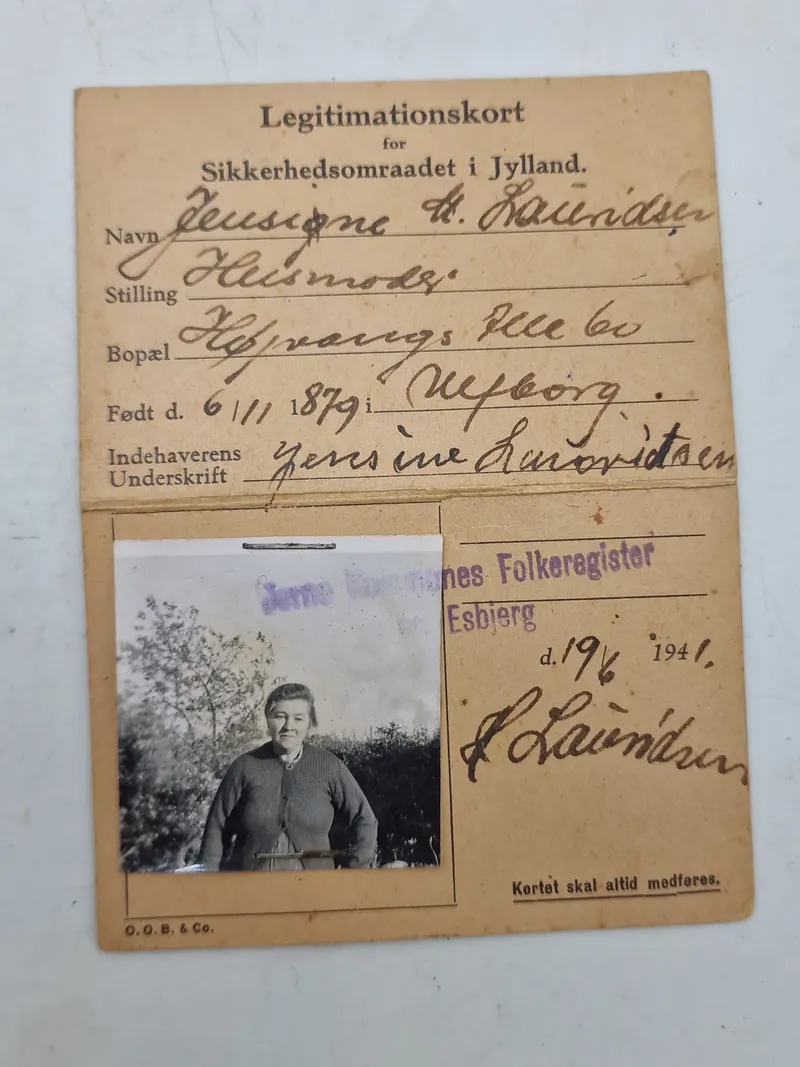 Legitimationskort
for
Sikkerhedsomraadet i Jylland.
Navn Jensigne M. Lauridsen
Stilling Husmoder
Bopæl Højvangs Alle 60
Født d. 6/11 1879 i Ulfborg.
Indehaverens
Underskrift Jensine Lauridsen
Jerne Kommunes Folkeregister
Esbjerg
d. 19/6 1941.
Lauridsen
Kortet skal altid medføres.
O.O.B. & Co.